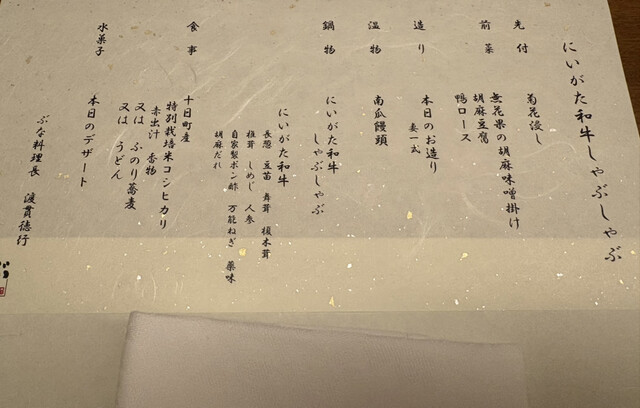 にいがた和牛しゃぶしゃぶ
先付
菊花浸し
前菜
無花果の胡麻味噌掛け
胡麻豆腐
鴨ロース
造り
本日のお造り
妻一式
温物
南瓜饅頭
鍋物
にいがた和牛
しゃぶしゃぶ
にいがた和牛
長葱 豆苗 舞茸 榎木茸
椎茸 しめじ 人参
自家製ポン酢 万能ねぎ 薬味
胡麻だれ
食事
十日町産
特別栽培米コシヒカリ
赤出汁 香物
又は ふのり蕎麦
又は うどん
水菓子
本日のデザート
ぶな料理長 渡貫徳行